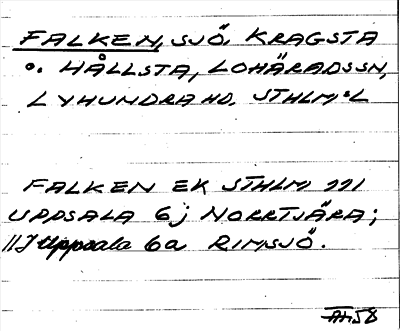 FALKEN, SJÖ, KRAGSTA
O. HÅLLSTA, LOHÄRADSSN,
LYHUNDRA HD. STHLMS L
FALKEN EK STHLM 111
UPPSALA 6j NORRTJÄRA;
11 J Uppsala 6a RIMSJÖ.
58